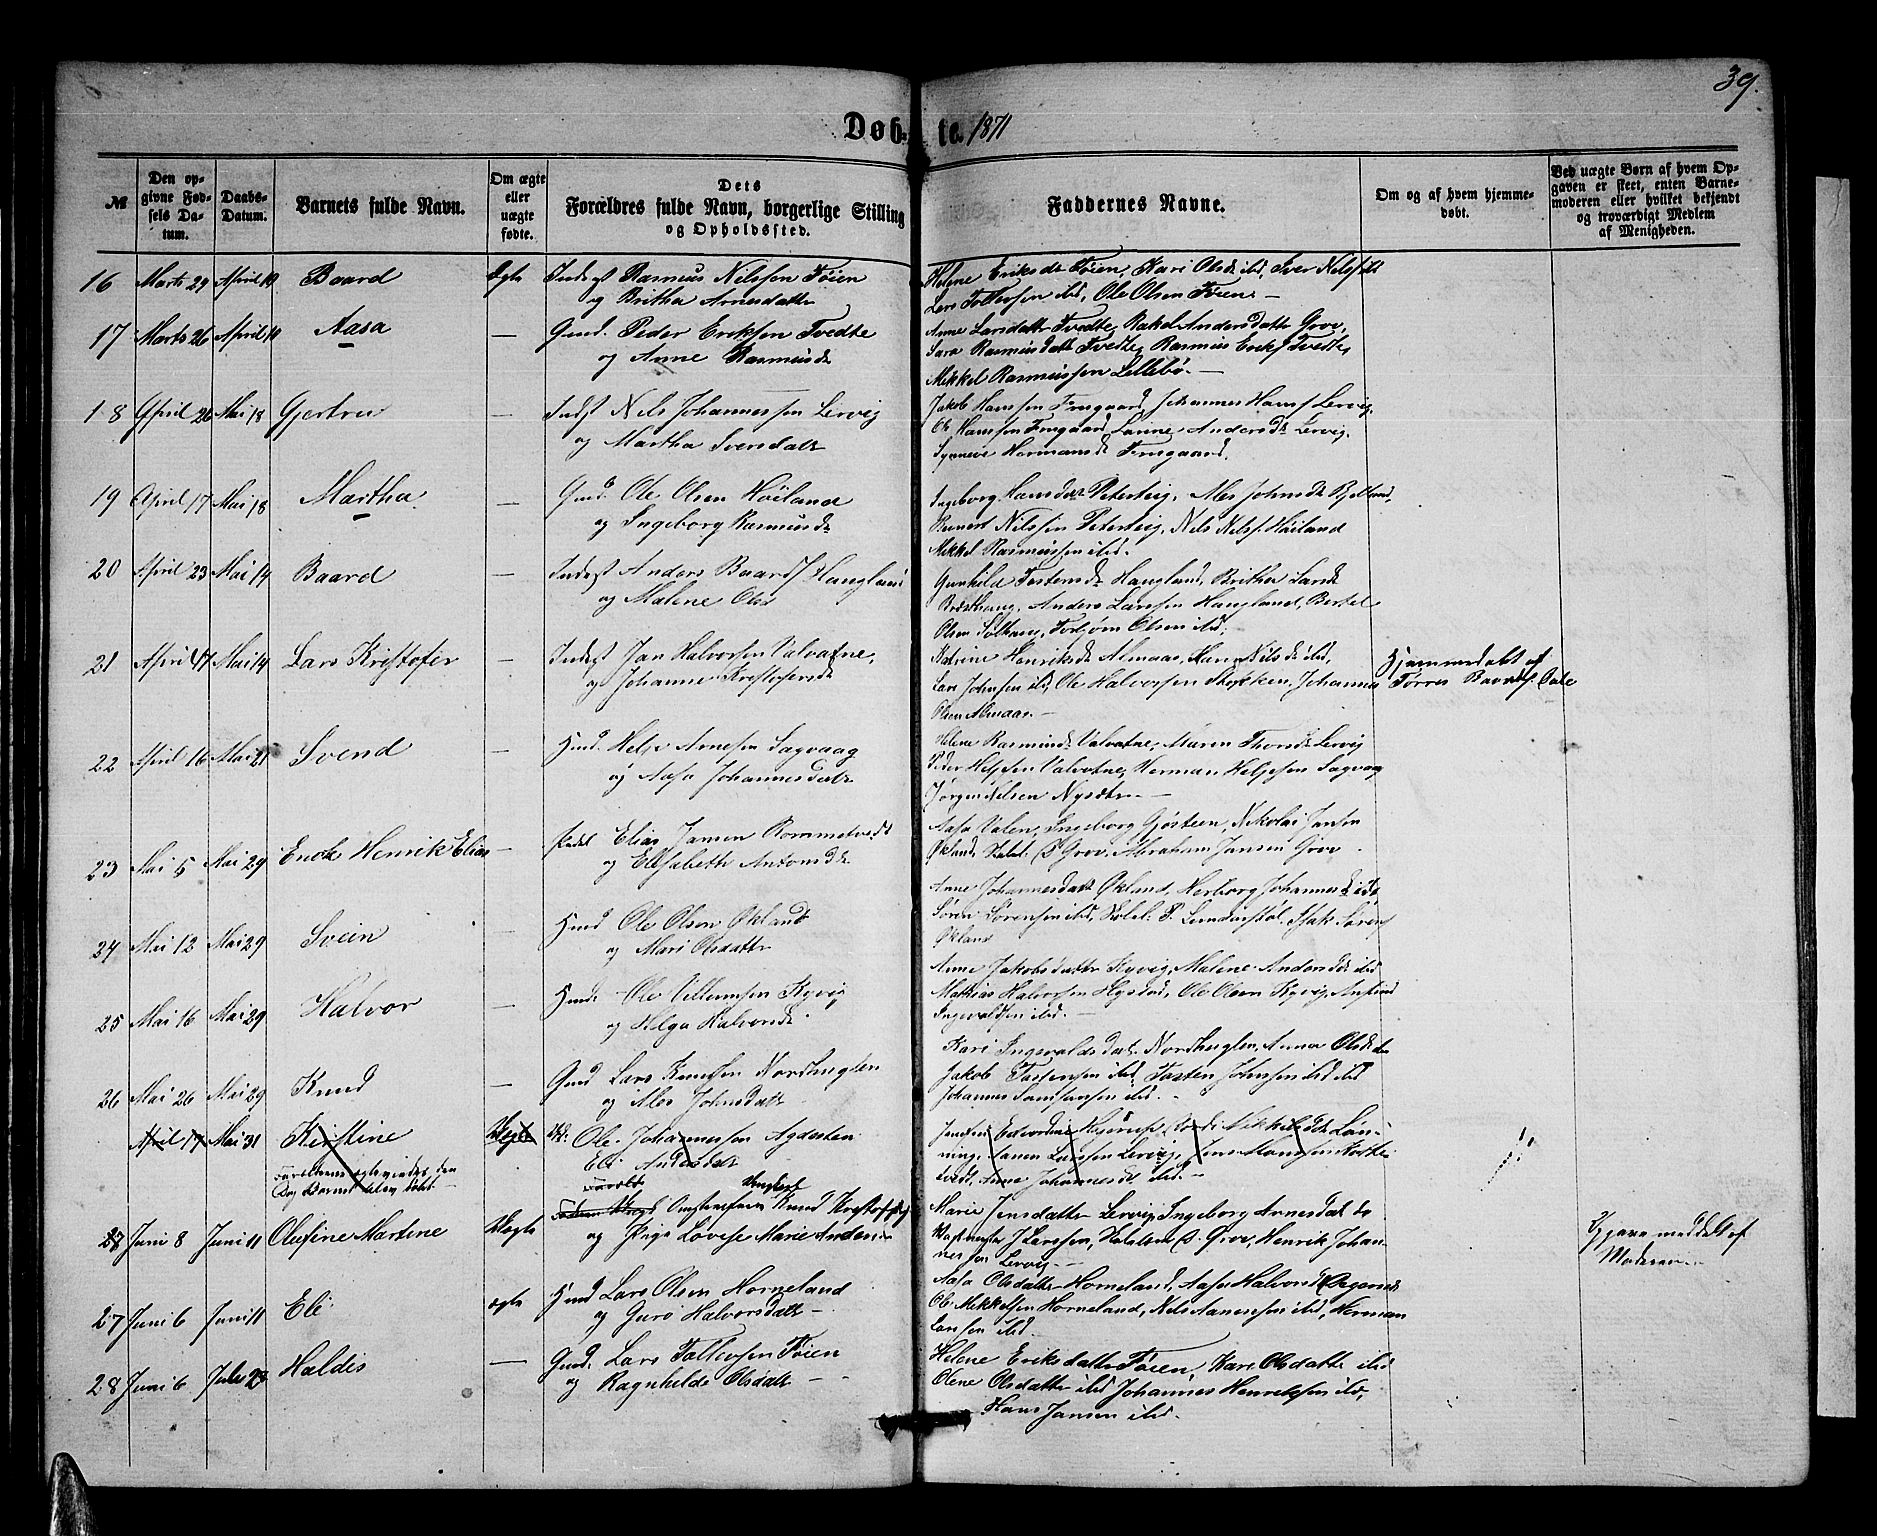 39.
Døbte. 1871
№
Den opgivne Fødsels Datum.
Daabs-Datum.
Barnets fulde Navn.
Om ægte eller uægte fødte.
Dets Forældres fulde Navn, borgerlige Stilling og Opholdssted.
Faddernes Navne.
Om og af hvem hjemmedøbt.
Ved uægte Børn af hvem Opgaven er skeet, enten Barnemoderen eller hvilket bekjendt og troværdigt Medlem af Menigheden.
16 Marts 29 April 10 Baard Ægte Inderst Rasmus Nilssen Føien
og Britha Arnesdattr
Helene Eriksdtr Føien, Kari Olsdtr ibd, Iver Nilsf ibd
Lars Tollevsen ibd, Ole Olsen Føien –
17 Marts 26 April 10 Aasa — Gmd. Peder Eriksen Tvedte
og Anne Rasmusdtr
Anne Larsdattr Tvedte, Rakel Andersdattr Grov,
Sara Rasmusdattr Tvedte, Rasmus Eriks Tvedte,
Mikkel Rasmussen Lillebø. —
18 April 26 Mai 18 Gjertru — Inderst Nils Johannessen Lervig
og Martha Svensdatr
Jakob Hanssen Frugaard, Johannes Hansf Lervig,
Ole Hanssen Frugaard, Larine Andersdtr Lervig.
Synneve Hermansdtr Frugaard.
19 April 17 Mai 18 Martha — Gmd. Ole Olsen Høiland
og Ingeborg Rasmusdtr
Ingeborg Hansdatr Petersteig, Ales Johnsdtr Bjelland,
Reinert Nilssen Petersteig, Nils Nilsf. Høiland
Mikkel Rasmussen ibd.
20 April 23 Mai 14 Baard — Inderst Anders Baardf Haugland
og Malene Olsd
Gunhild Tostensdtr Haugland, Britha Larsdtr
Anders Larssen Haugland, Bertel
Torbjørn Olsen ibd,
21 April 17 Mai 14 Lars Kristofer — Inderst Jan Halvorsen Valvatne,
og Johanne Kristofersdtr
Katrine Henriksdtr Almaas, Hans Nilsdtr ibd,
Lars Johnsen ibd, Ole Halvorssen Stokken, Johannes
Olsen Almaas. —
Hjemmedøbt af
Torres Baardsf. Dale
22 April 16 Mai 21 Svend — Hmd. Helje Arnesen Sagvaag
og Aasa Johannesdatr
Helene Rasmusdtr Valvatne, Maren Thorsdtr Lervig
Peder Heljesen Valvatne, Herman Heljesen Sagvaag
Jørgen Nilsen Nysætr. —
23 Mai 5 Mai 29 Enok Henrik Elias Elias Jansen Rommetvedt
og Elisabeth Antonsdtr
Aasa Valen, Ingeborg Gjøsteen, Nikolai Jansen
Økland, Grov, Abraham Jansen Grov
24 Mai 12 Mai 29 Svein — Hmd Ole Olsen Økland
og Mari Olsdattr
Anne Johannesdatr Økland, Herborg Johannesd ibd,
Søren Sørensen ibd, Isak Sørens
Økland
25 Mai 16 Mai 29 Halvor — Hmd. Ole Villumsen Kyvig
og Helga Halvorsdtr
Anne Jakobsdattr Kyvig, Malene Andersdtr ibd
Mathias Halvorsen Hystad, Ole Olsen Kyvig, Østen
Ingevaldsen ibd. —
26 Mai 26 Mai 29 Knud — Gmd Lars Knudsen Nordhuglen
og Ales Johnsdatr
Kari Ingevaldsdatr Nordhuglen, Anna Olsdtr ibd
Jakob Tostensen ibd, Tosten Johnsen ibd ibd
Johannes Samsonsen ibd. —
April 17 Mai 31 Kirstine Uægte Ole Johannessen Agdesten
Eli Andersdatr
Forældrene ægteviedes den
Dag Barnet blev døbt. —
Lønning, Lars Larssen Lervig, Jens Hanssen
Anne Johannesdtr ibd. —
27 Juni 8 Juni 11 Olefine Martine Uægte Knud Kristoffersen
og Pige Lovise Marie Andersd
Marie Jensdatter Lervig, Ingeborg Arnesdatr do
J Larssen, Grov, Henrik Johannessen Lervig. —
Moderen. —
27 Juni 6 Juni 11 Eli ægte Hmd Lars Olsen Horneland
og Guro Halvorsdatr —
Aasa Olsdatter Horneland, Aasa Halvorsd
Ole Mikkelsen Horneland, Nils Aanensen ibd, Herman
Larssen ibd.
28 Juni 6 Haldis — Gmd. Lars Tollevsen Føien
og Ragnhilde Olsdatr —
Helene Eriksdatter Føien, Kari Olsdattr ibd
Olene Olsdatter ibd Johannes Henrikssen ibd,
Hans Jansen ibd.